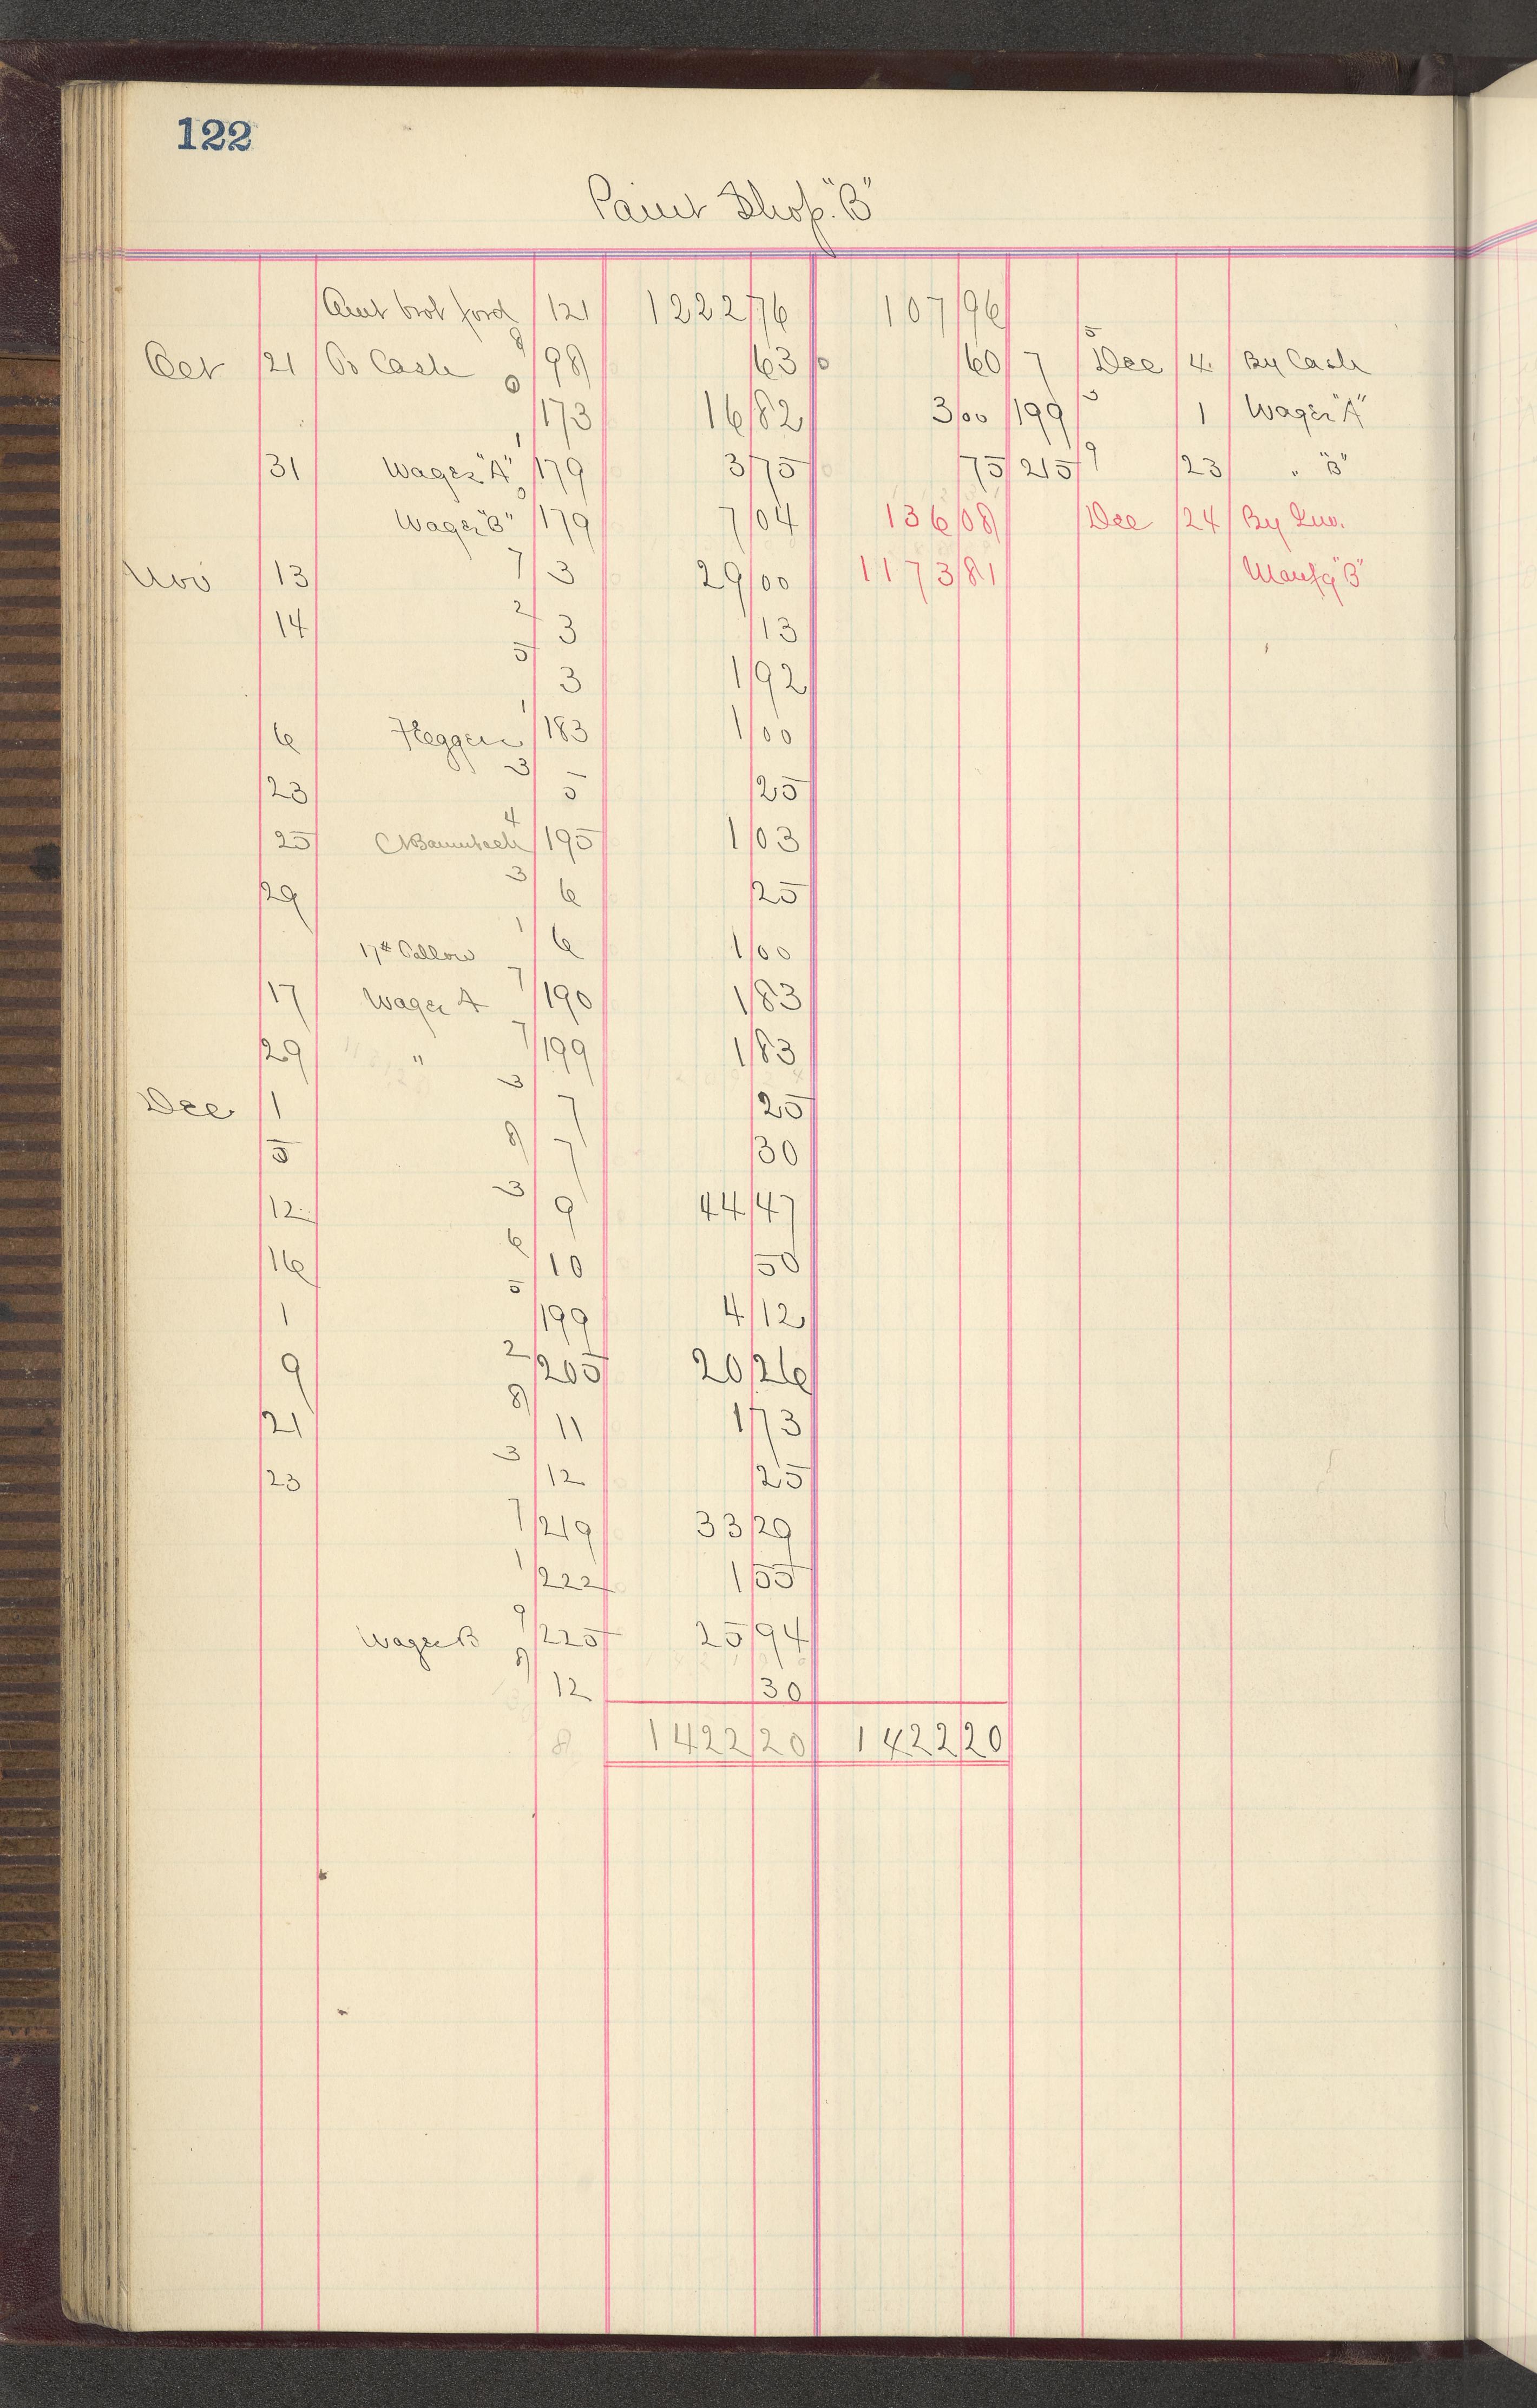 122
Paint Shop. "B"
Amt brot ford 121 1222 76 107 96
8 5
Oct 21 To Cash 98 63 60 7 Dec 4 By Cash
0 3
173 16 82 3 00 199 1 Wages "A"
1 9
31 Wages "A" 179 3 75 75 215 23 " "B"
0
Wages "B" 179 7 04 136 08 Dec 24 By Inv.
7
Nov 13 3 29 00 1173 81 Manfg "B"
2
14 3 13
5
3 1 92
1
6 183 1 00
3
23 5 25
4
25 195 1 03
3
29 6 25
1
17th 6 1 00
7
17 Wages A 190 1 83
7
29 " 199 1 83
3
Dec 1 7 25
8
5 7 30
3
12 9 44 47
6
16 10 50
5
1 199 4 12
2
9 205 20 26
8
21 11 1 73
3
23 12 25
7
219 33 29
1
222 1 55
9
Wages B 225 25 94
8
12 30
8 1422 20 1422 20